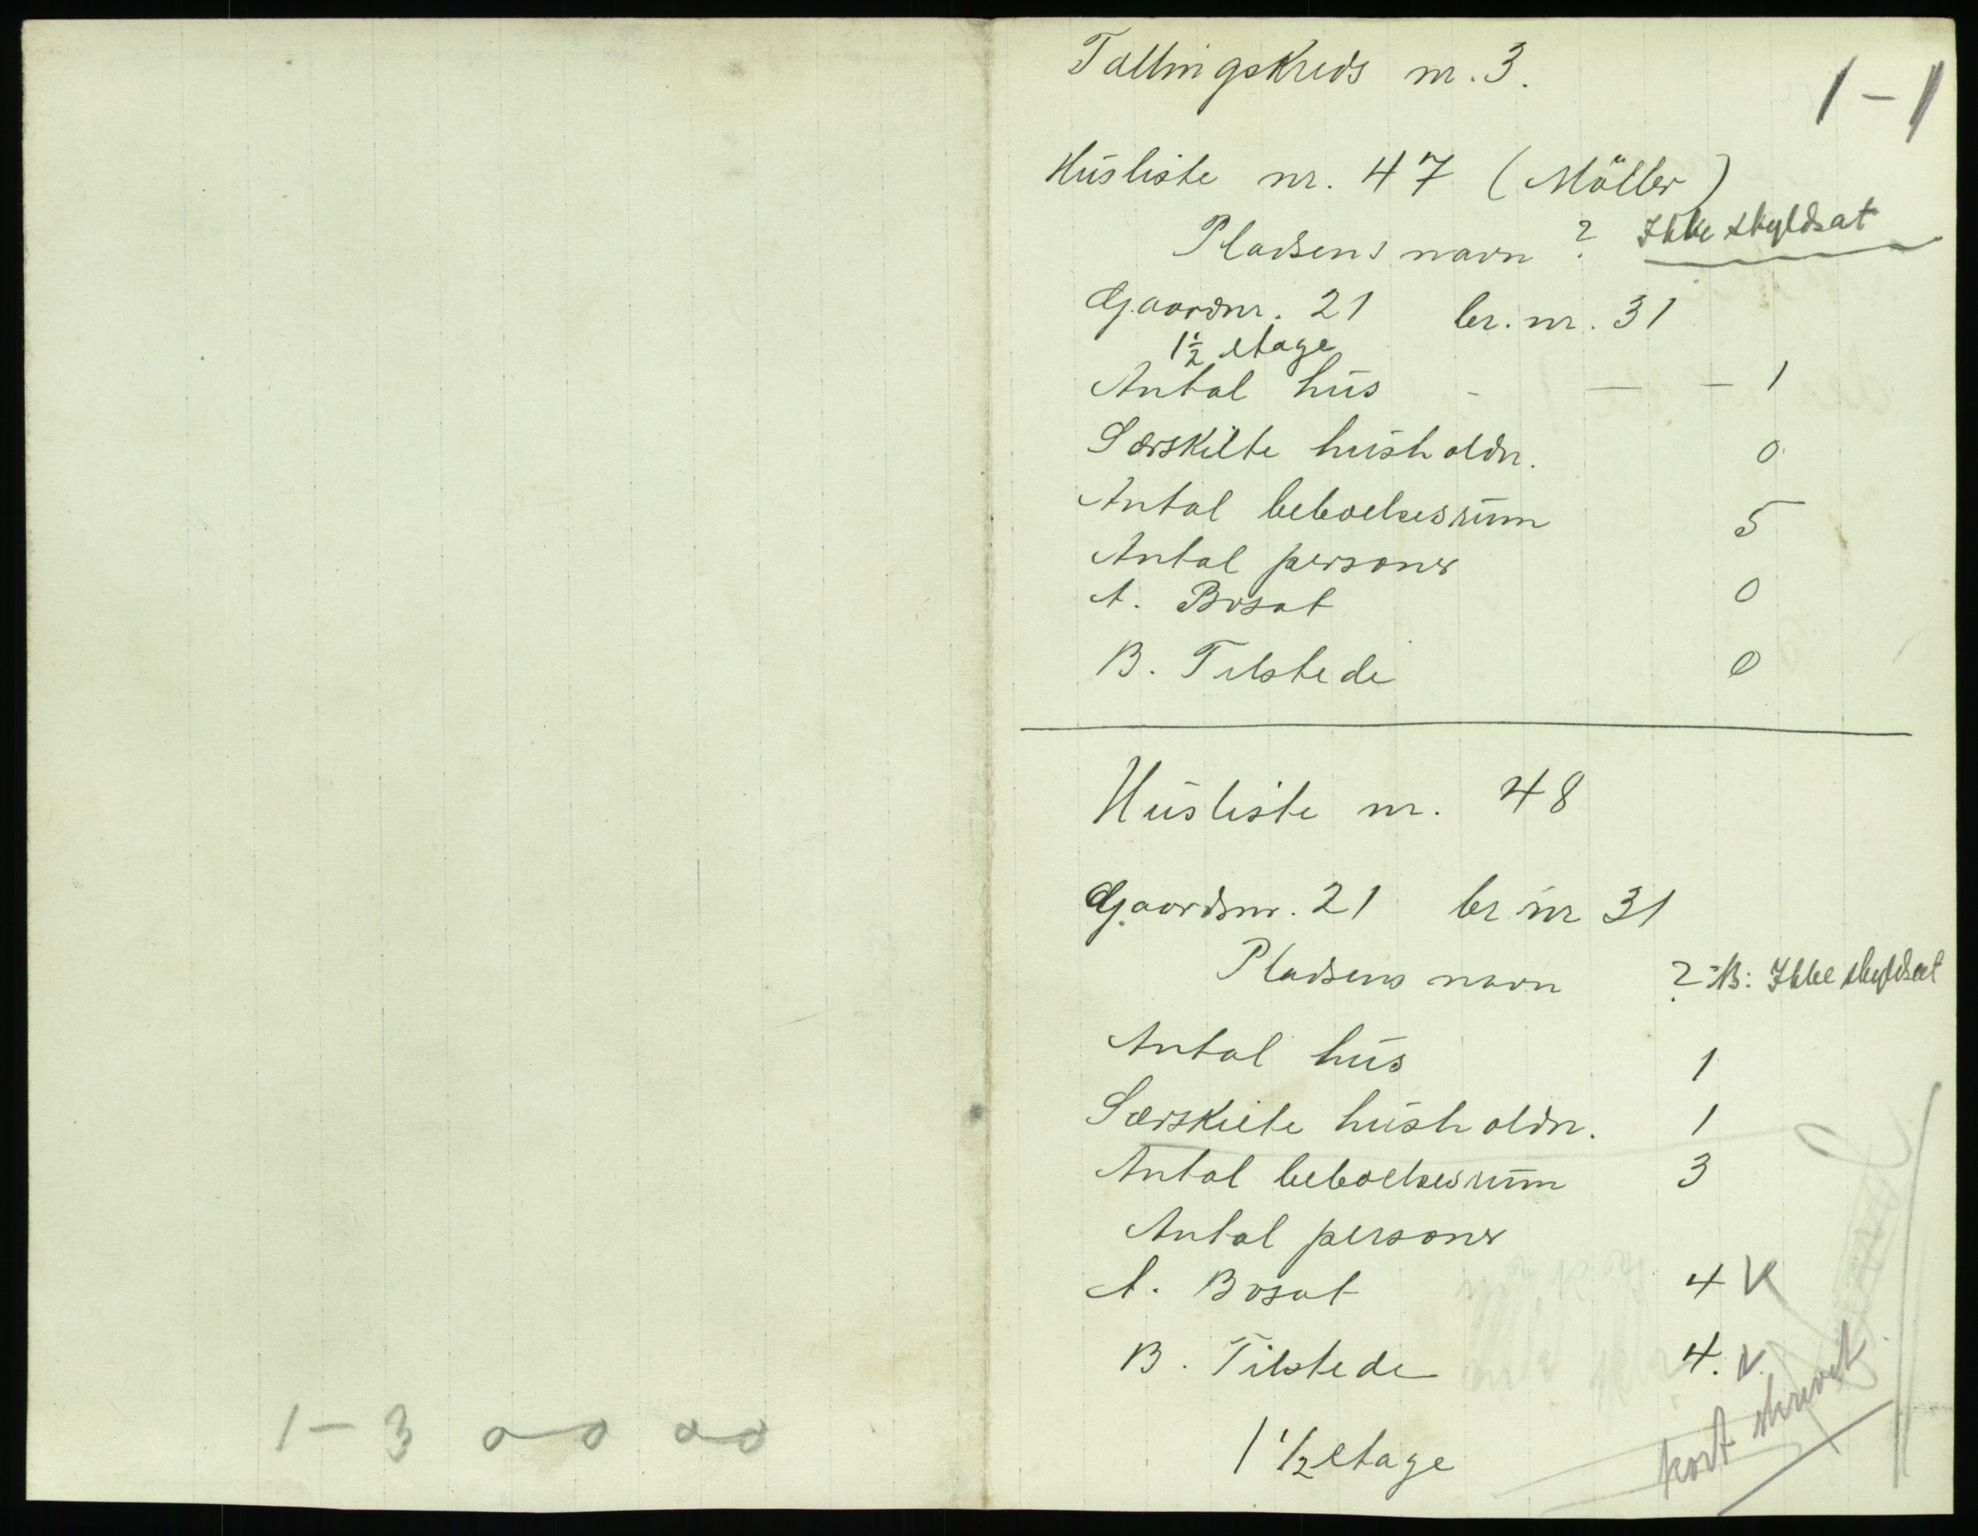 1 - 3 0-0 0-0
Tællingskreds nr. 3.
1 - 1
Husliste nr. 47 (Möller)
Pladsens navn ? Ikke skyldsat
Gaardnr. 21 br. nr. 31
1½ etage
Antal hus - — - 1
Særskilte hush oldn. 0
Antal beboelsesrum 5
Antal personer
A. Bosat 0
B. Tilstede 0
Husliste nr. 48
Gaardsnr. 21 br nr 31
Pladsens navn ? B: Ikke skyldsat
Antal hus 1
Særskilte hush oldn. 1
Antal beboelsesrum 3
Antal personer
A. Bosat 4 V
B. Tilstede 4. V
kort skrevet
1 ½ etage